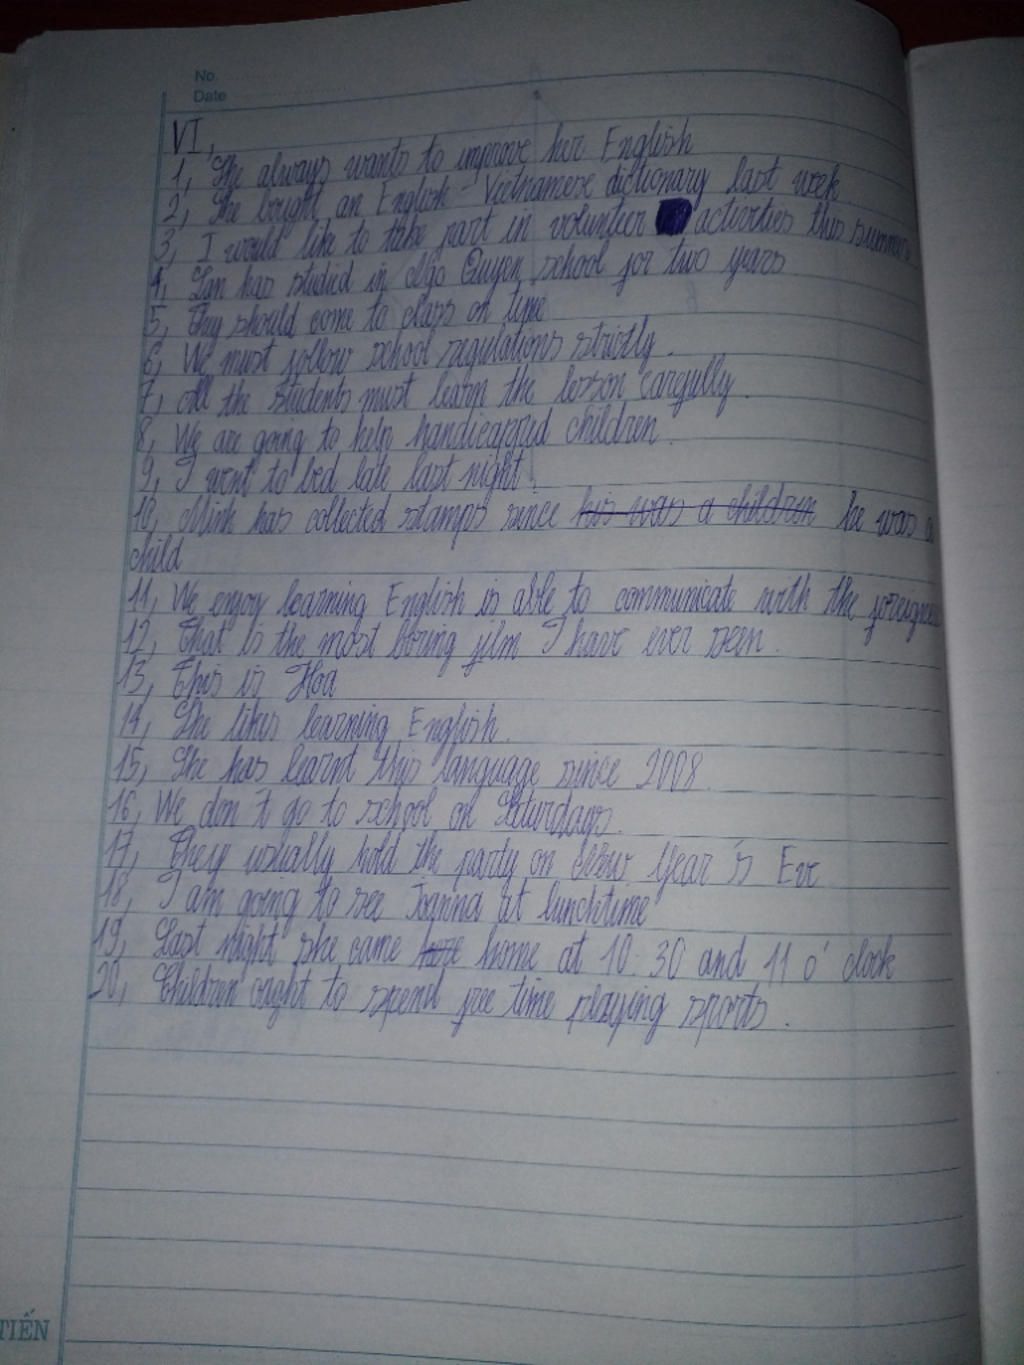 No.
Date
VI,
1, She always wants to improve her English
2, She bought an English - Vietnamese dictionary last week
3, I would like to take part in volunteer activities this summer
4, Lan has studied in Ngo Quyen school for two years
5, They should come to class on time
6, We must follow school regulations strictly.
7, All the students must learn the lesson carefully.
8, We are going to help handicapped children.
9, I went to bed late last night.
10, Minh has collected stamps since his was a children he was a
child
11, We enjoy learning English is able to communicate with the
12, That is the most boring film I have ever seen.
13, This is Hoa
14, She likes learning English.
15, She has learnt this language since 2008.
16, We don't go to school on Saturdays.
17, They usually hold the party on New Year's Eve
18, I am going to see Joanna at lunchtime
19, Last night she came home at 10:30 and 11 o' clock
20, Children ought to spend free time playing sports.
TIẾN